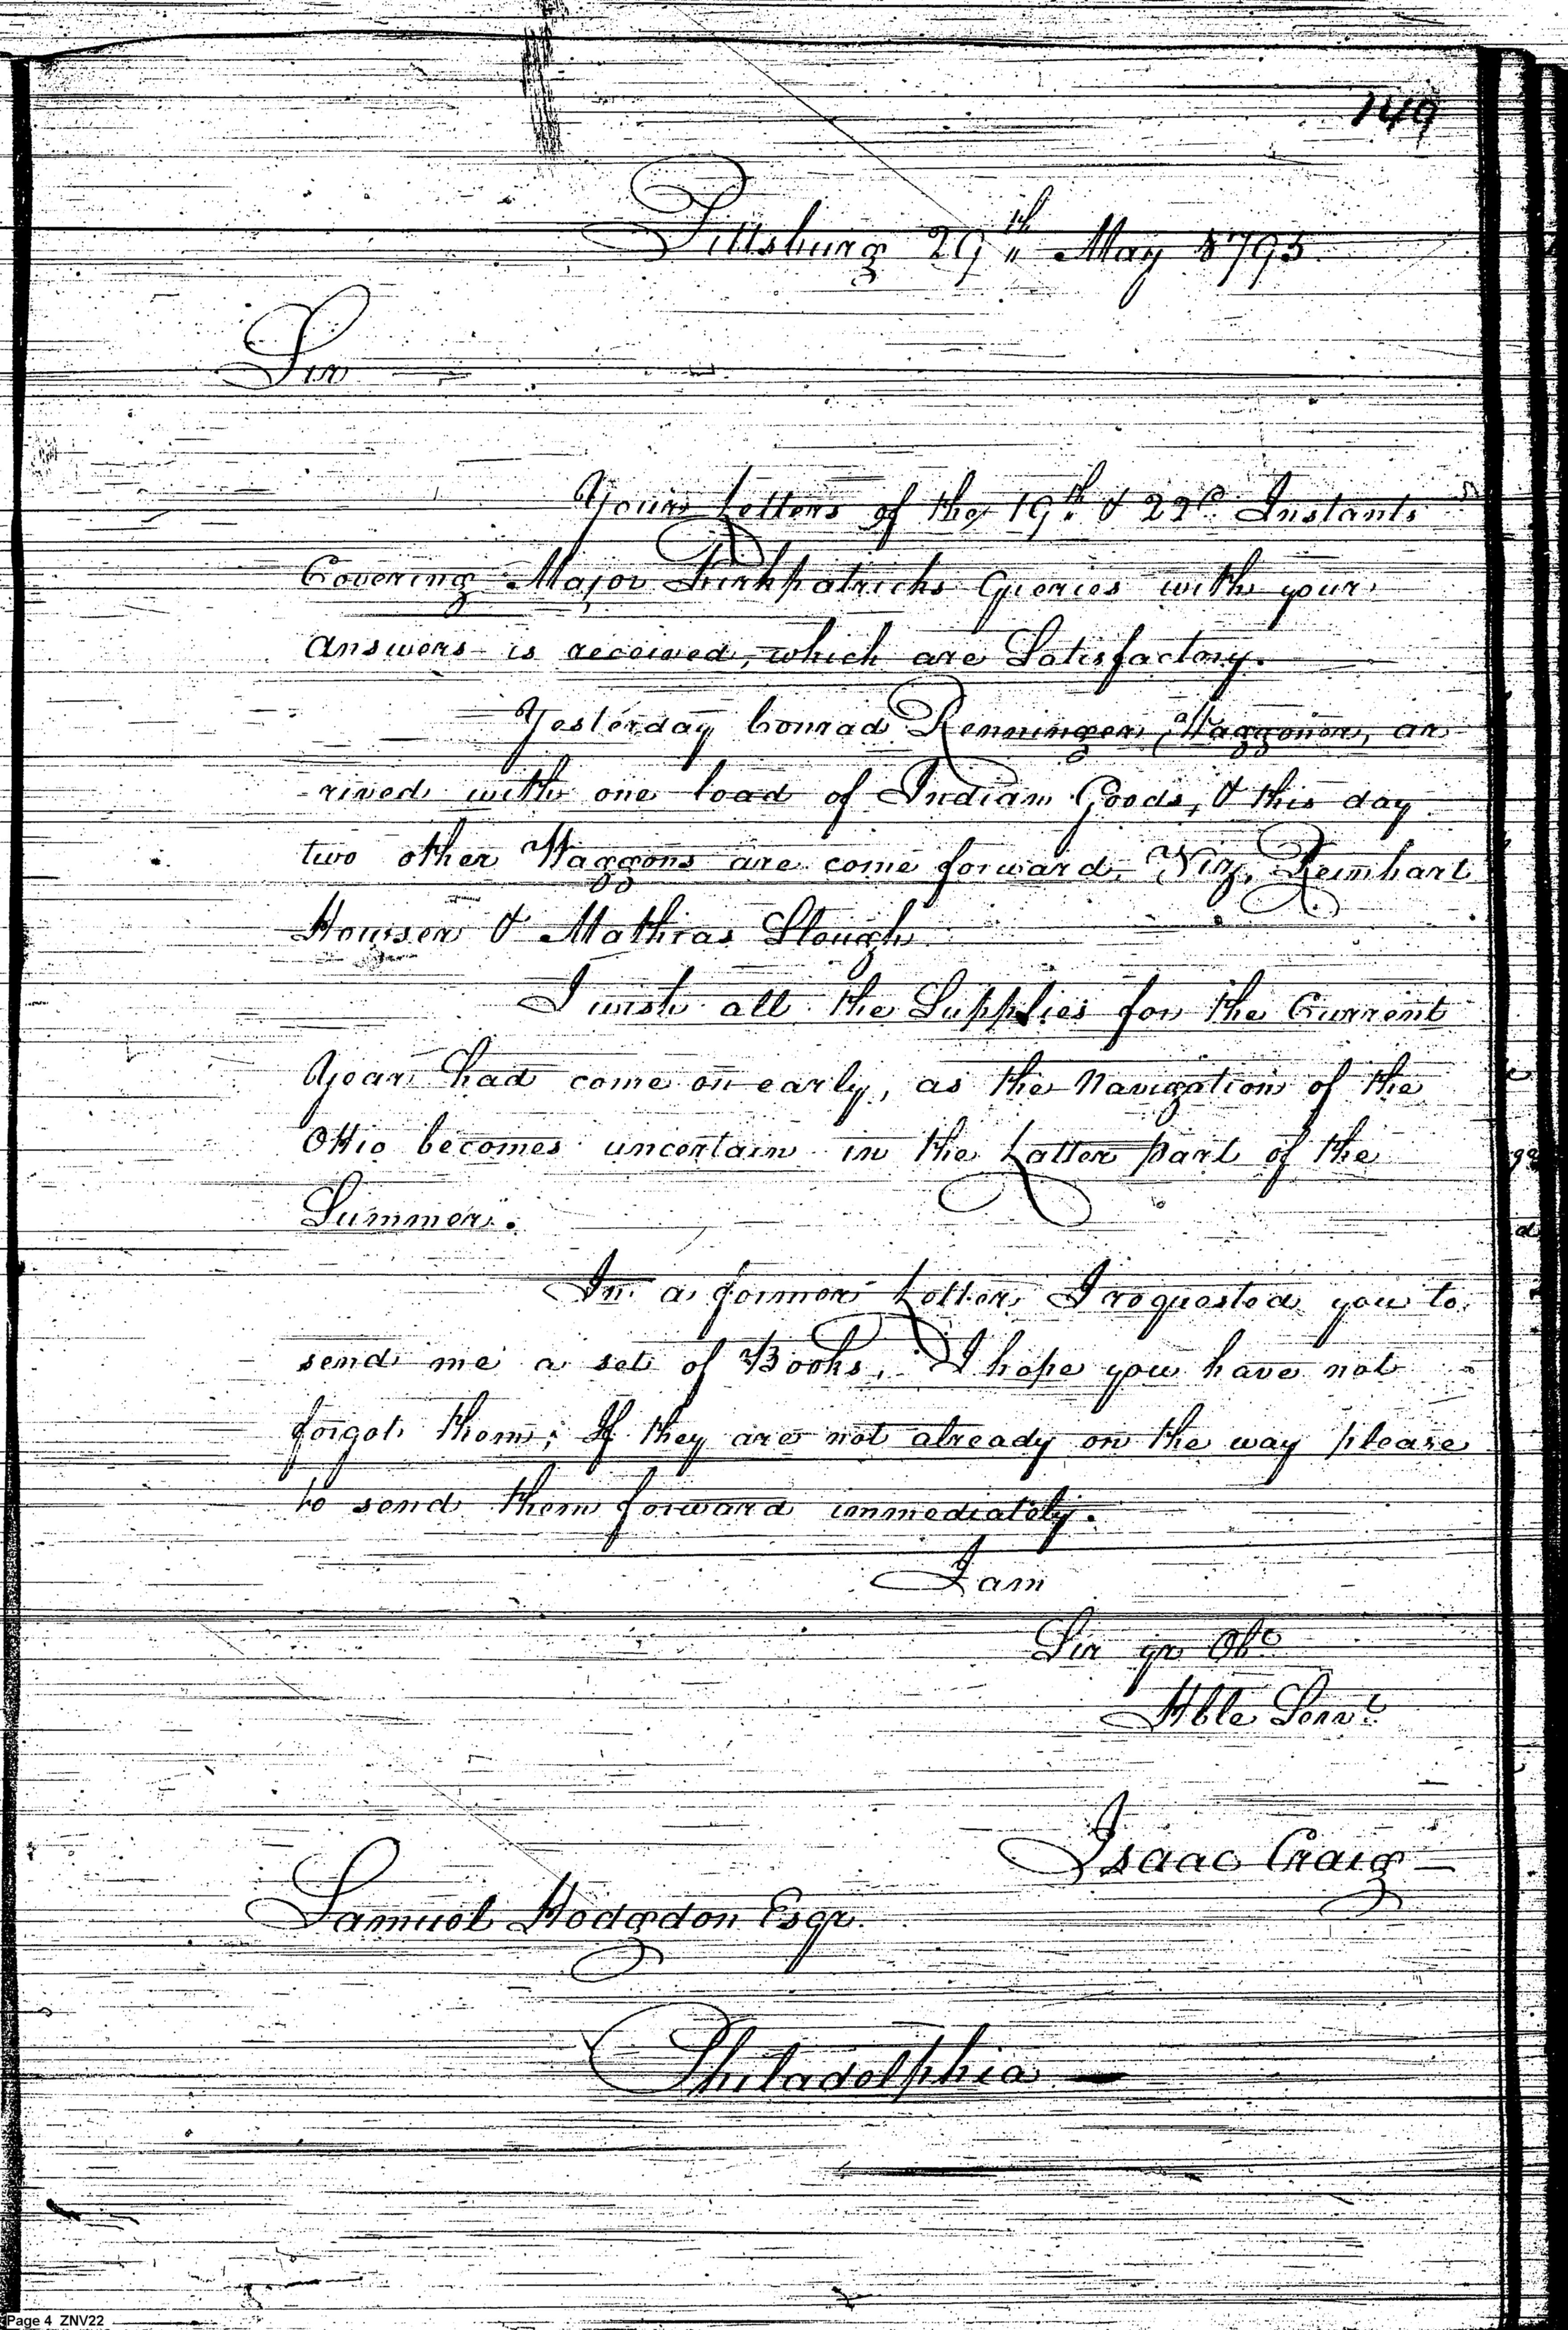 149
Pittsburg 29th May 1795
Sir
Your Letters of the 19th & 22d Instants
Covering Major Kirkpatricks Queries with your
answers is received, which are Satisfactory.
Yesterday Conrad Renninger, Waggoner, ar
-rived with one load of Indian Goods, & this day
two other Waggons are come forward, Viz, Reinhart
Howser & Mathias Slough
I wish all the Supplies for the Current
Year had come on early, as the Navigation of the
Ohio becomes uncertain in the Latter part of the
Summer.
In a former Letter, I requested you to
send me a set of Books, I hope you have not
forgot them; If they are not already on the way please
to send them forward immediately.
I am
Sir yr Obe
Hble Servt
Isaac Craig
Samuel Hodgdon Esqr.
Philadelphia
Page 4 ZNV22